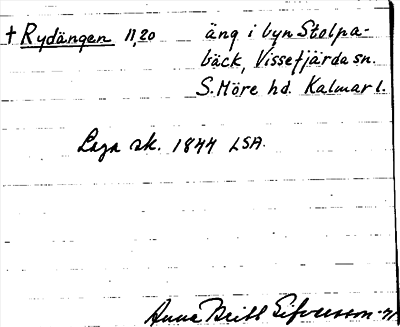 † Rydängen 11,20 äng i byn Stolpa-
bäck, Vissefjärda sn.
S. Möre hd. Kalmar l.
Laga sk. 1844 LSA.
Anna Britt Sifvesson -71